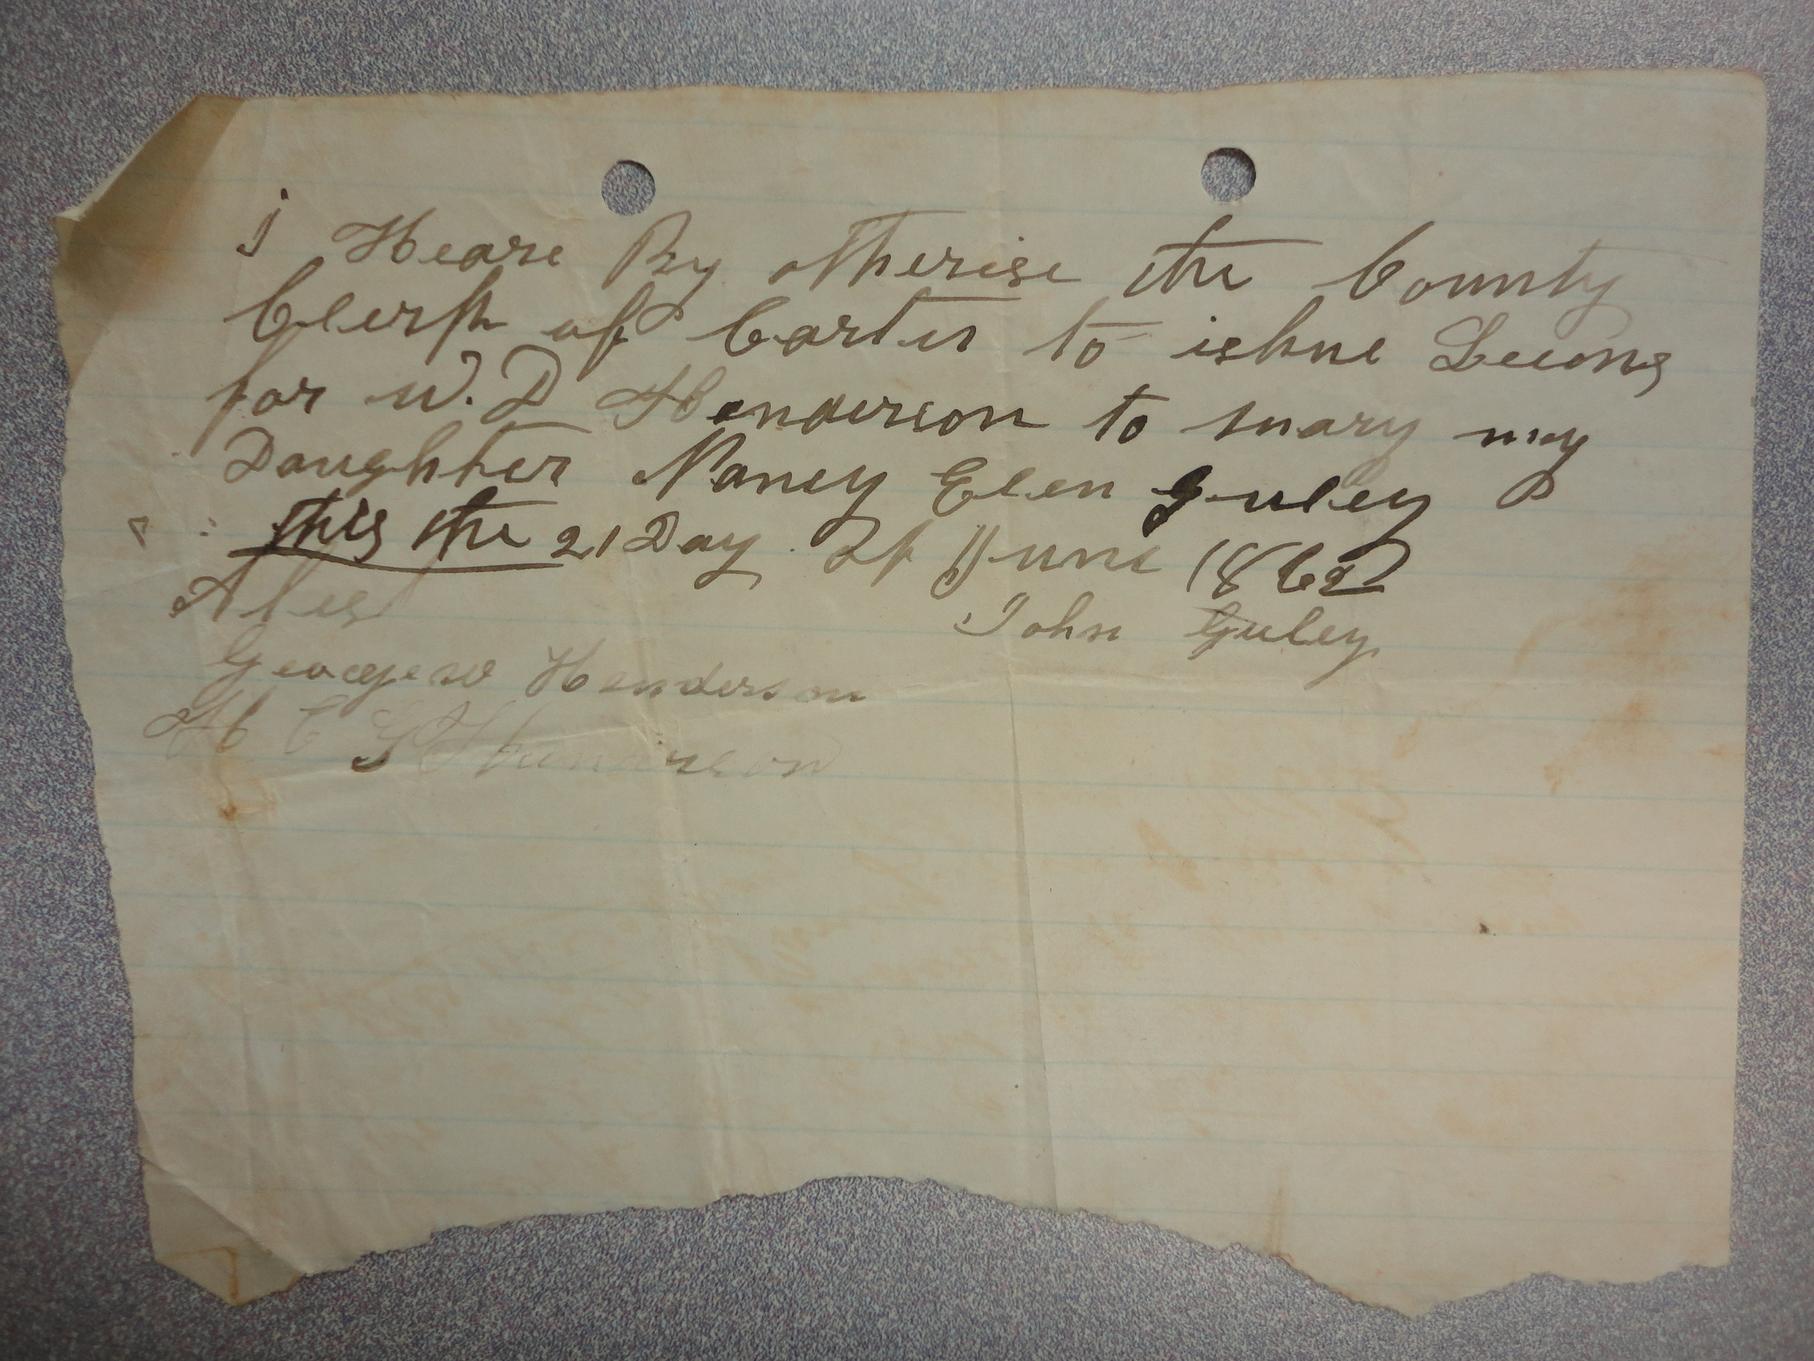 i Heare By otherise the County
Clerk of Carter to ishue Lecons
for W. D Henderson to mary my
Daughter Nancy Elen Guley
this the 21 Day Of June 1862
Ates John Guley
George W Henderson
H C